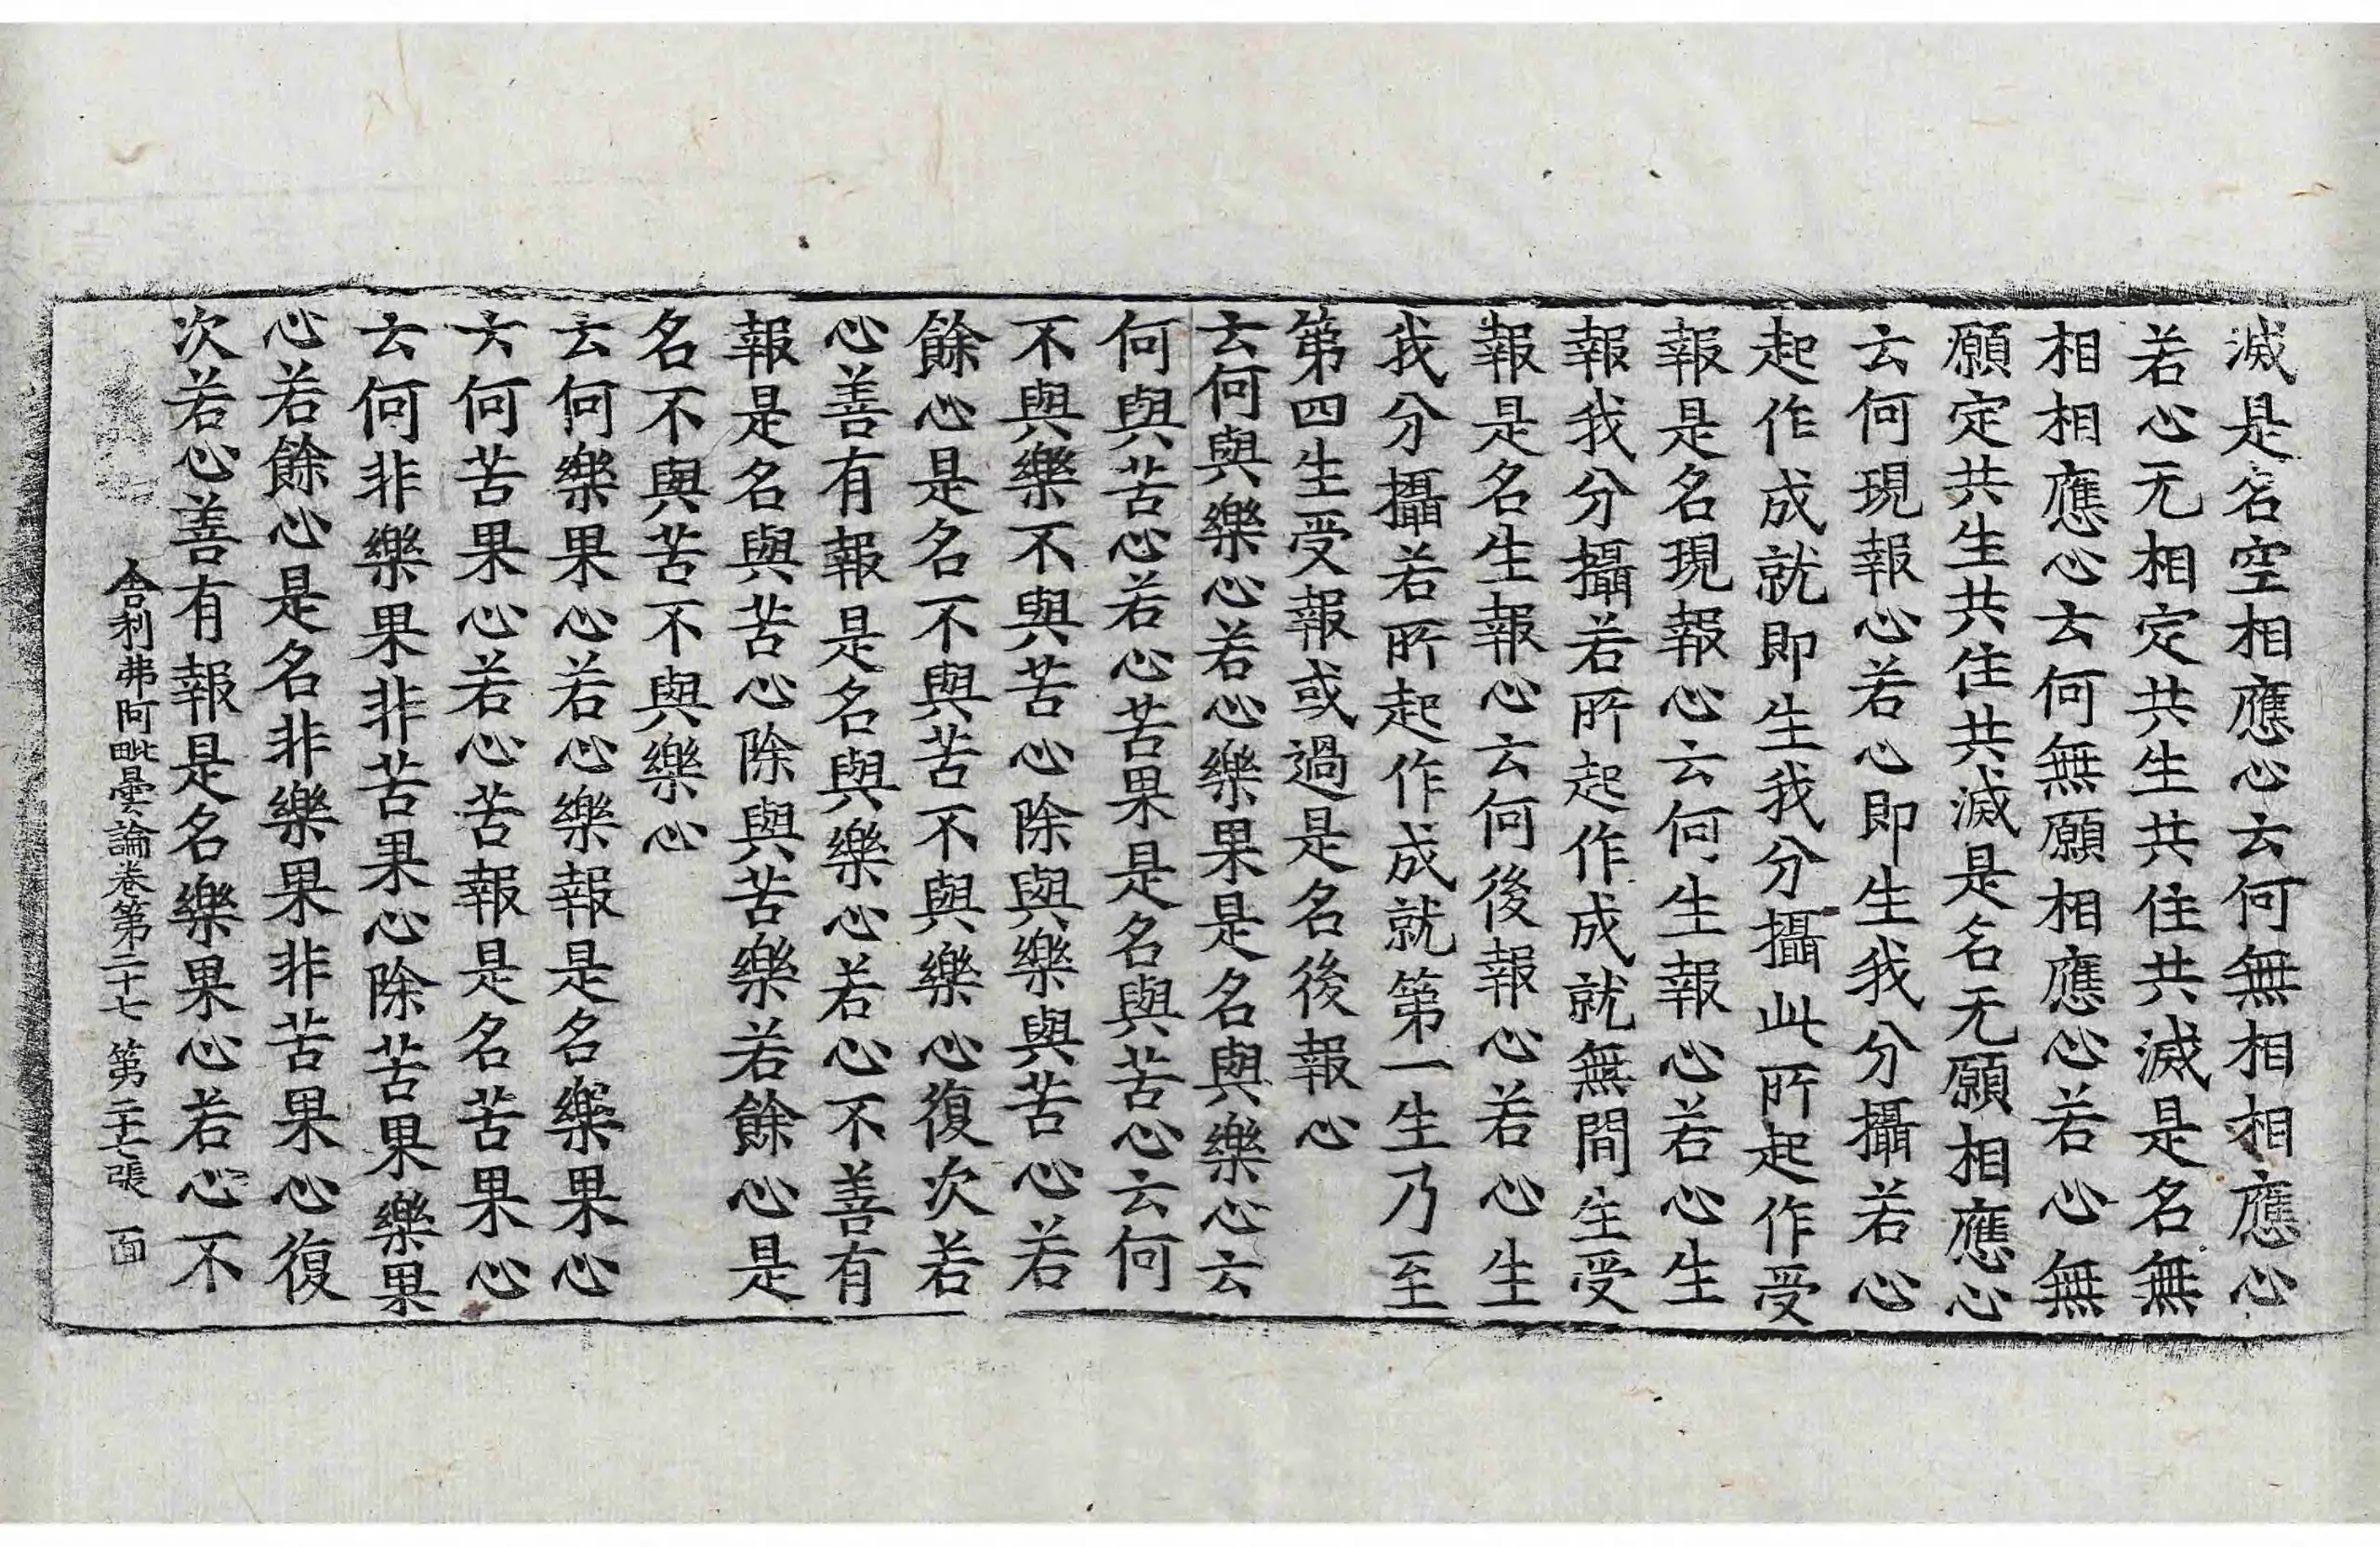 滅是名空相應心云何無相相應心
若心无相定共生共住共滅是名無
相相應心云何無願相應心若心無
願定共生共住共滅是名无願相應心
云何現報心若心即生我分攝若心
起作成就即生我分攝此所起作受
報是名現報心云何生報心若心生
報我分攝若所起作成就無間生受
報是名生報心云何後報心若心生
我分攝若所起作成就第一生乃至
第四生受報或過是名後報心
云何與樂心若心樂果是名與樂心云
何與苦心若心苦果是名與苦心云何
不與樂不與苦心除與樂與苦心若
餘心是名不與苦不與樂心復次若
心善有報是名與樂心若心不善有
報是名與苦心除與苦樂若餘心是
名不與苦不與樂心
云何樂果心若心樂報是名樂果心
云何苦果心若心苦報是名苦果心
云何非樂果非苦果心除苦果樂果
心若餘心是名非樂果非苦果心復
次若心善有報是名樂果心若心不
舍利弗阿毗曇論卷第二十七 第二十七張 面